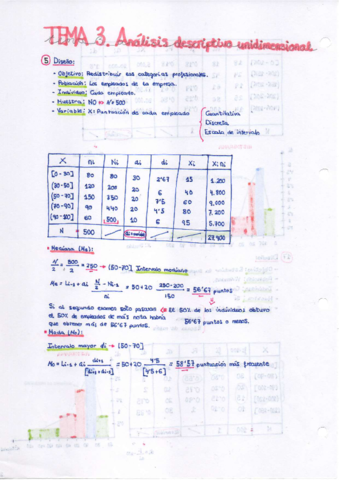 TEMA 3. Análisis descriptivo unidimensional
5 Diseño:
- Objetivo: Redistribuir las categorías profesionales.
- Población: Los empleados de la empresa.
- Individuo: Cada empleado.
- Muestra: NO → N=500
- Variable: X= Puntuación de cada empleado
Cuantitativa
Discreta
Escala de intervalo
X ni Ni ai di Xi Xi·ni
[0-30) 80 80 30 2'67 15 1.200
[30-50) 120 200 20 6 40 4.800
[50-70) 150 350 20 7'5 60 9.000
[70-90) 90 440 20 4'5 80 7.200
[90-100) 60 500 10 6 95 5.700
N 500 27.900
• Mediana (Me):
N/2 = 500/2 = 250 → [50-70) Intervalo mediano
Me = Li-1 + ai · (N/2 - Ni-1)/ni = 50+20 · (250-200)/150 = 56'67 puntos
Si al segundo examen solo pasara el 50% de empleados de más nota habrá que obtener más de 56'67 puntos.
El 50% de los individuos obtuvo 56'67 puntos o menos.
• Moda (Mo):
Intervalo mayor di → [50-70)
Mo = Li-1 + ai · di+1/[di-1 + di+1] = 50+20 · 4'5/[4'5+6] = 58'57 puntuación más frecuente